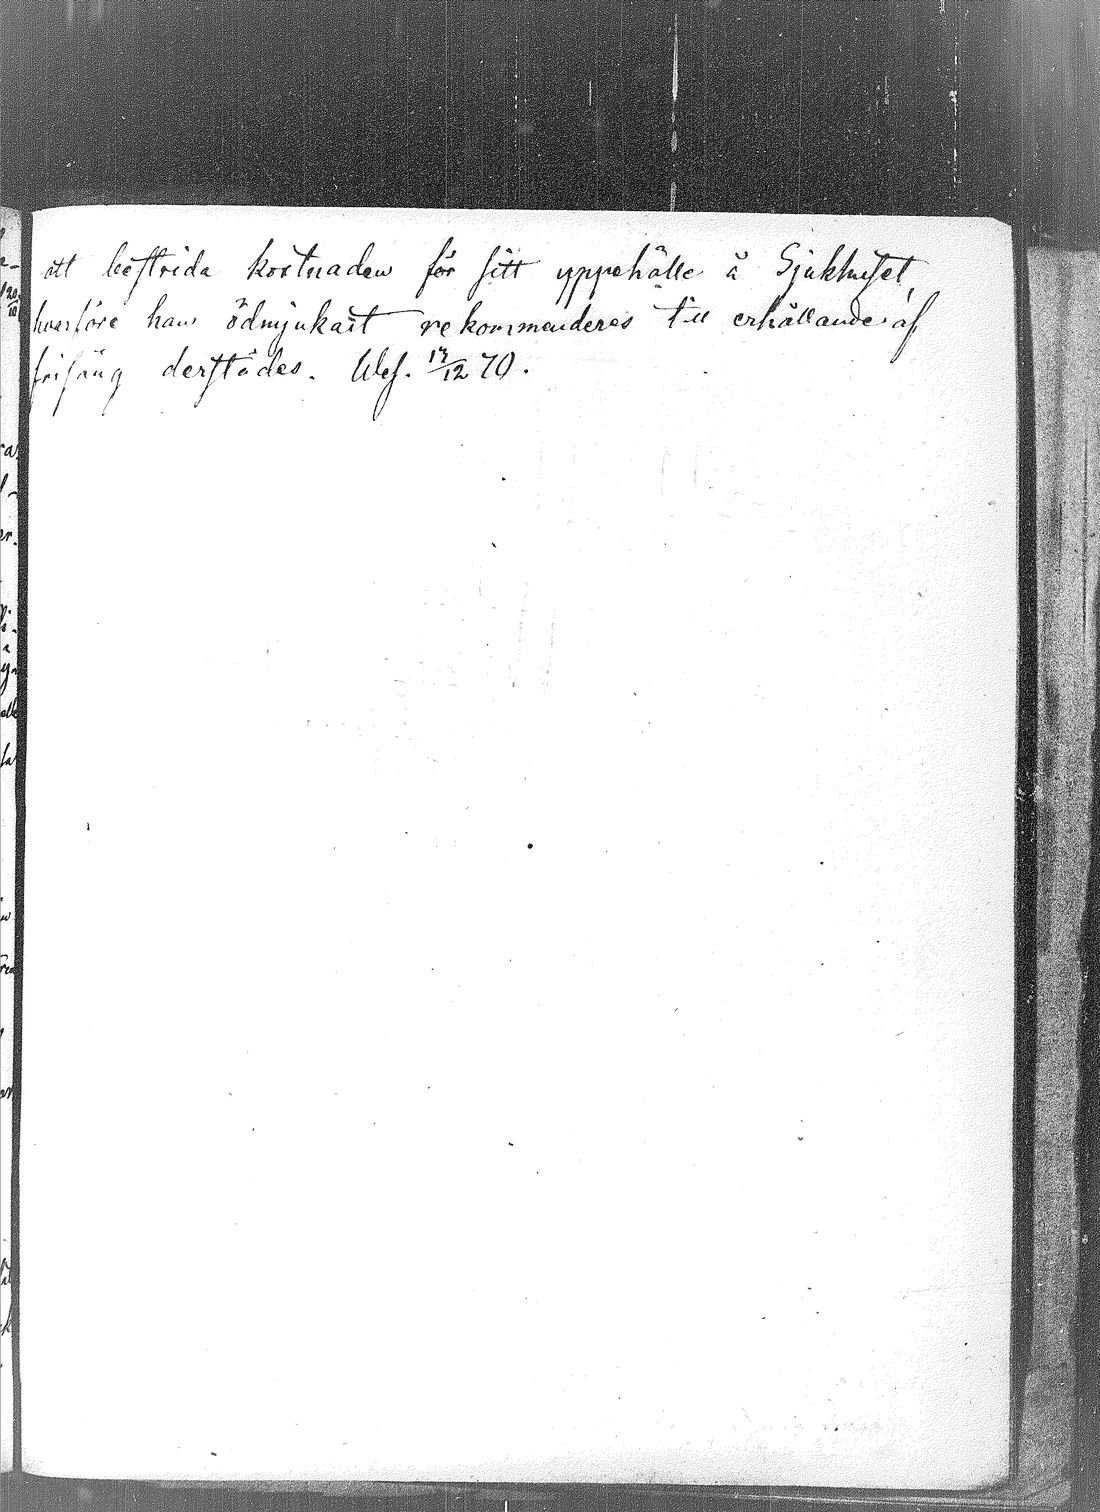 att bestrida kostnaden för sitt uppehälle å Sjukhuset,
hvarföre han ödmjukast rekommenderes till erhållande af
frisäng derstädes. Wef. 17/12 70.